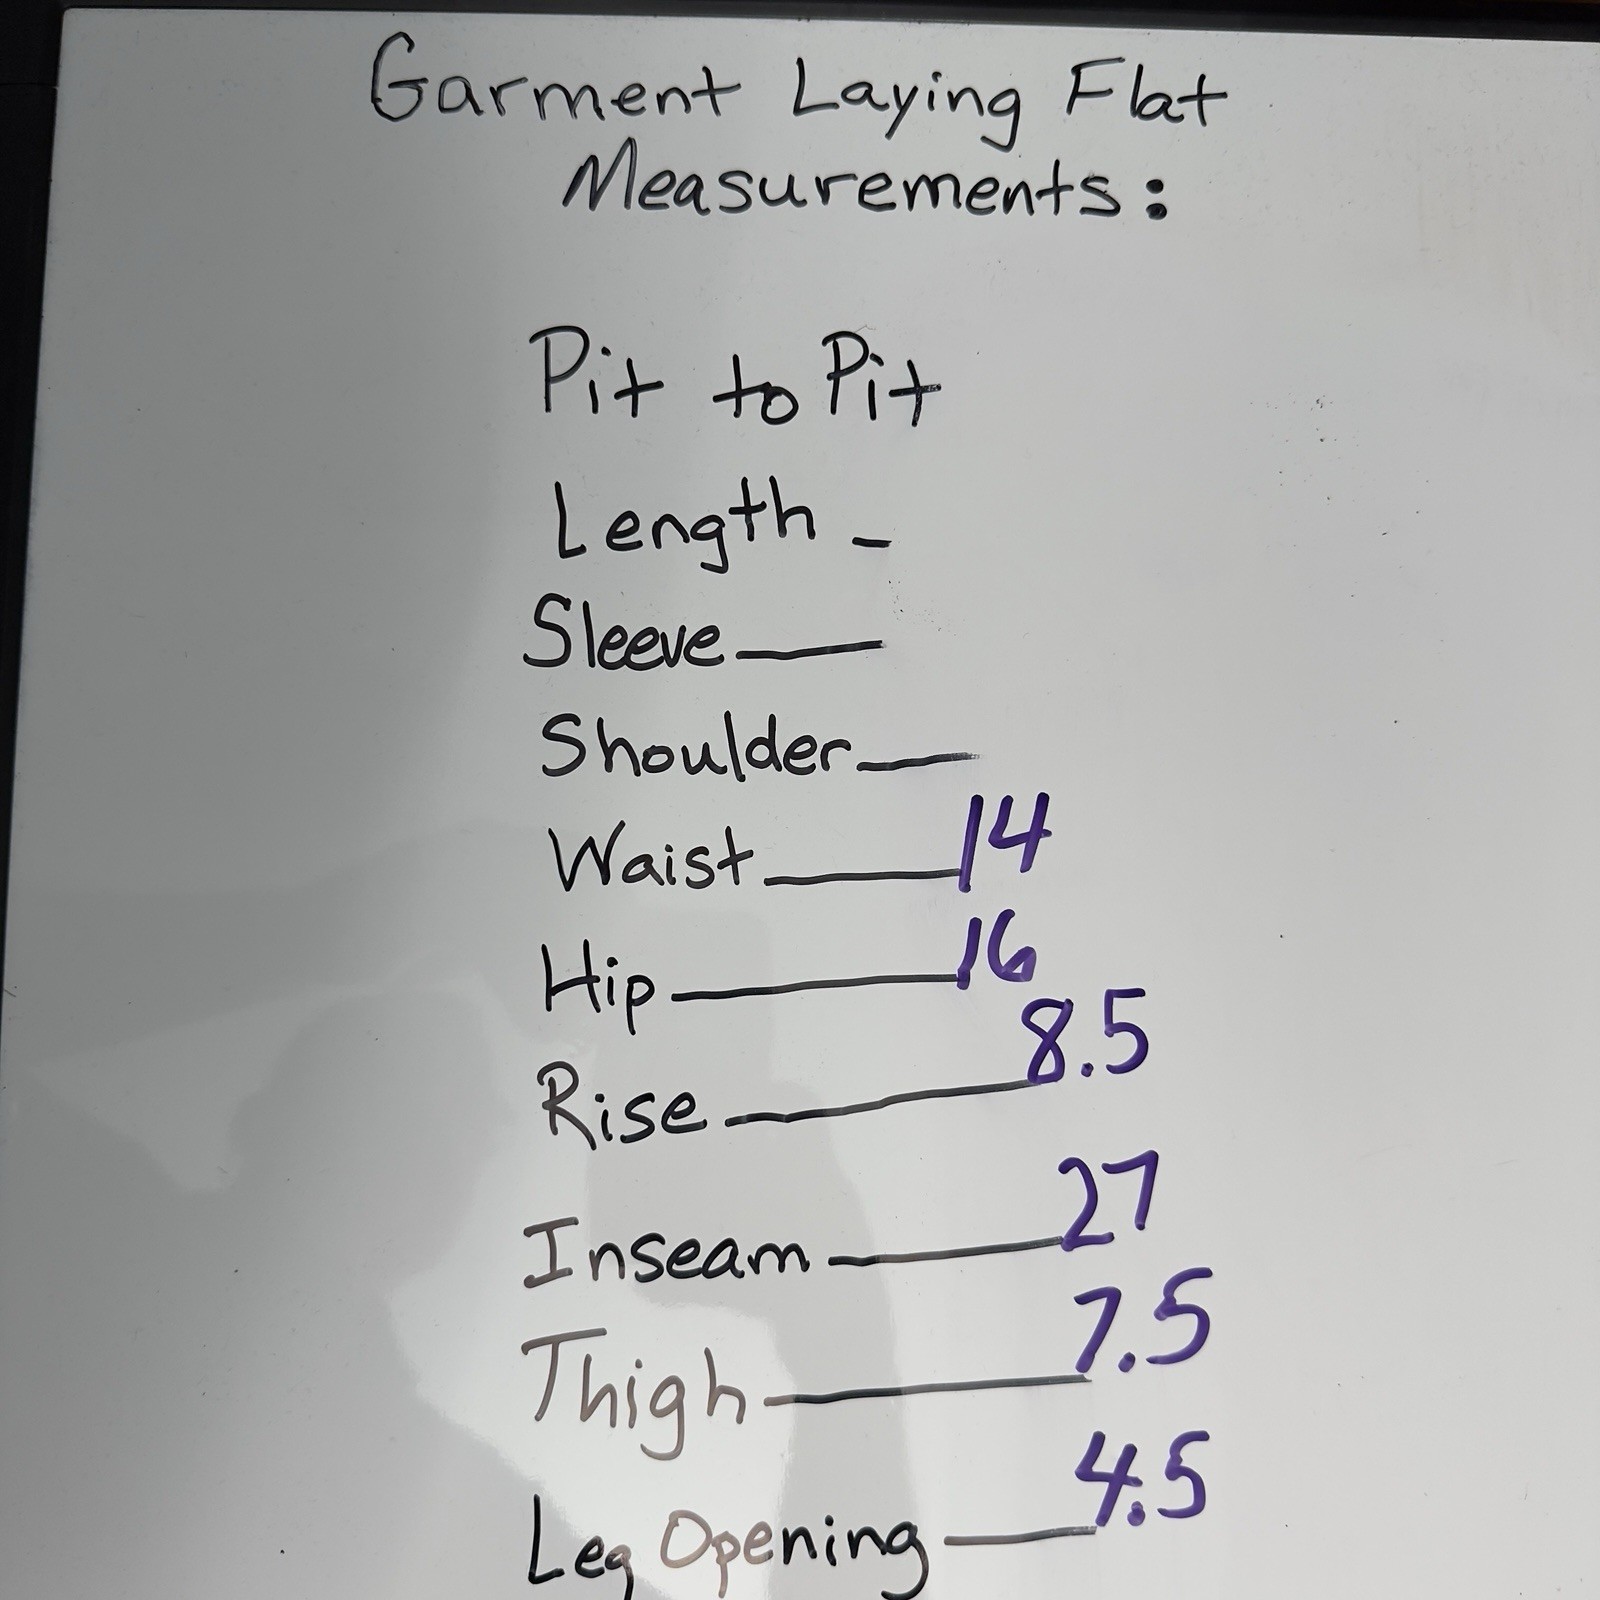 Garment Laying Flat
Measurements:
Pit to Pit
Length _
Sleeve ___
Shoulder ___
Waist ___ 14
Hip ___ 16
Rise ___ 8.5
Inseam ___ 27
Thigh ___ 7.5
Leg Opening ___ 4.5